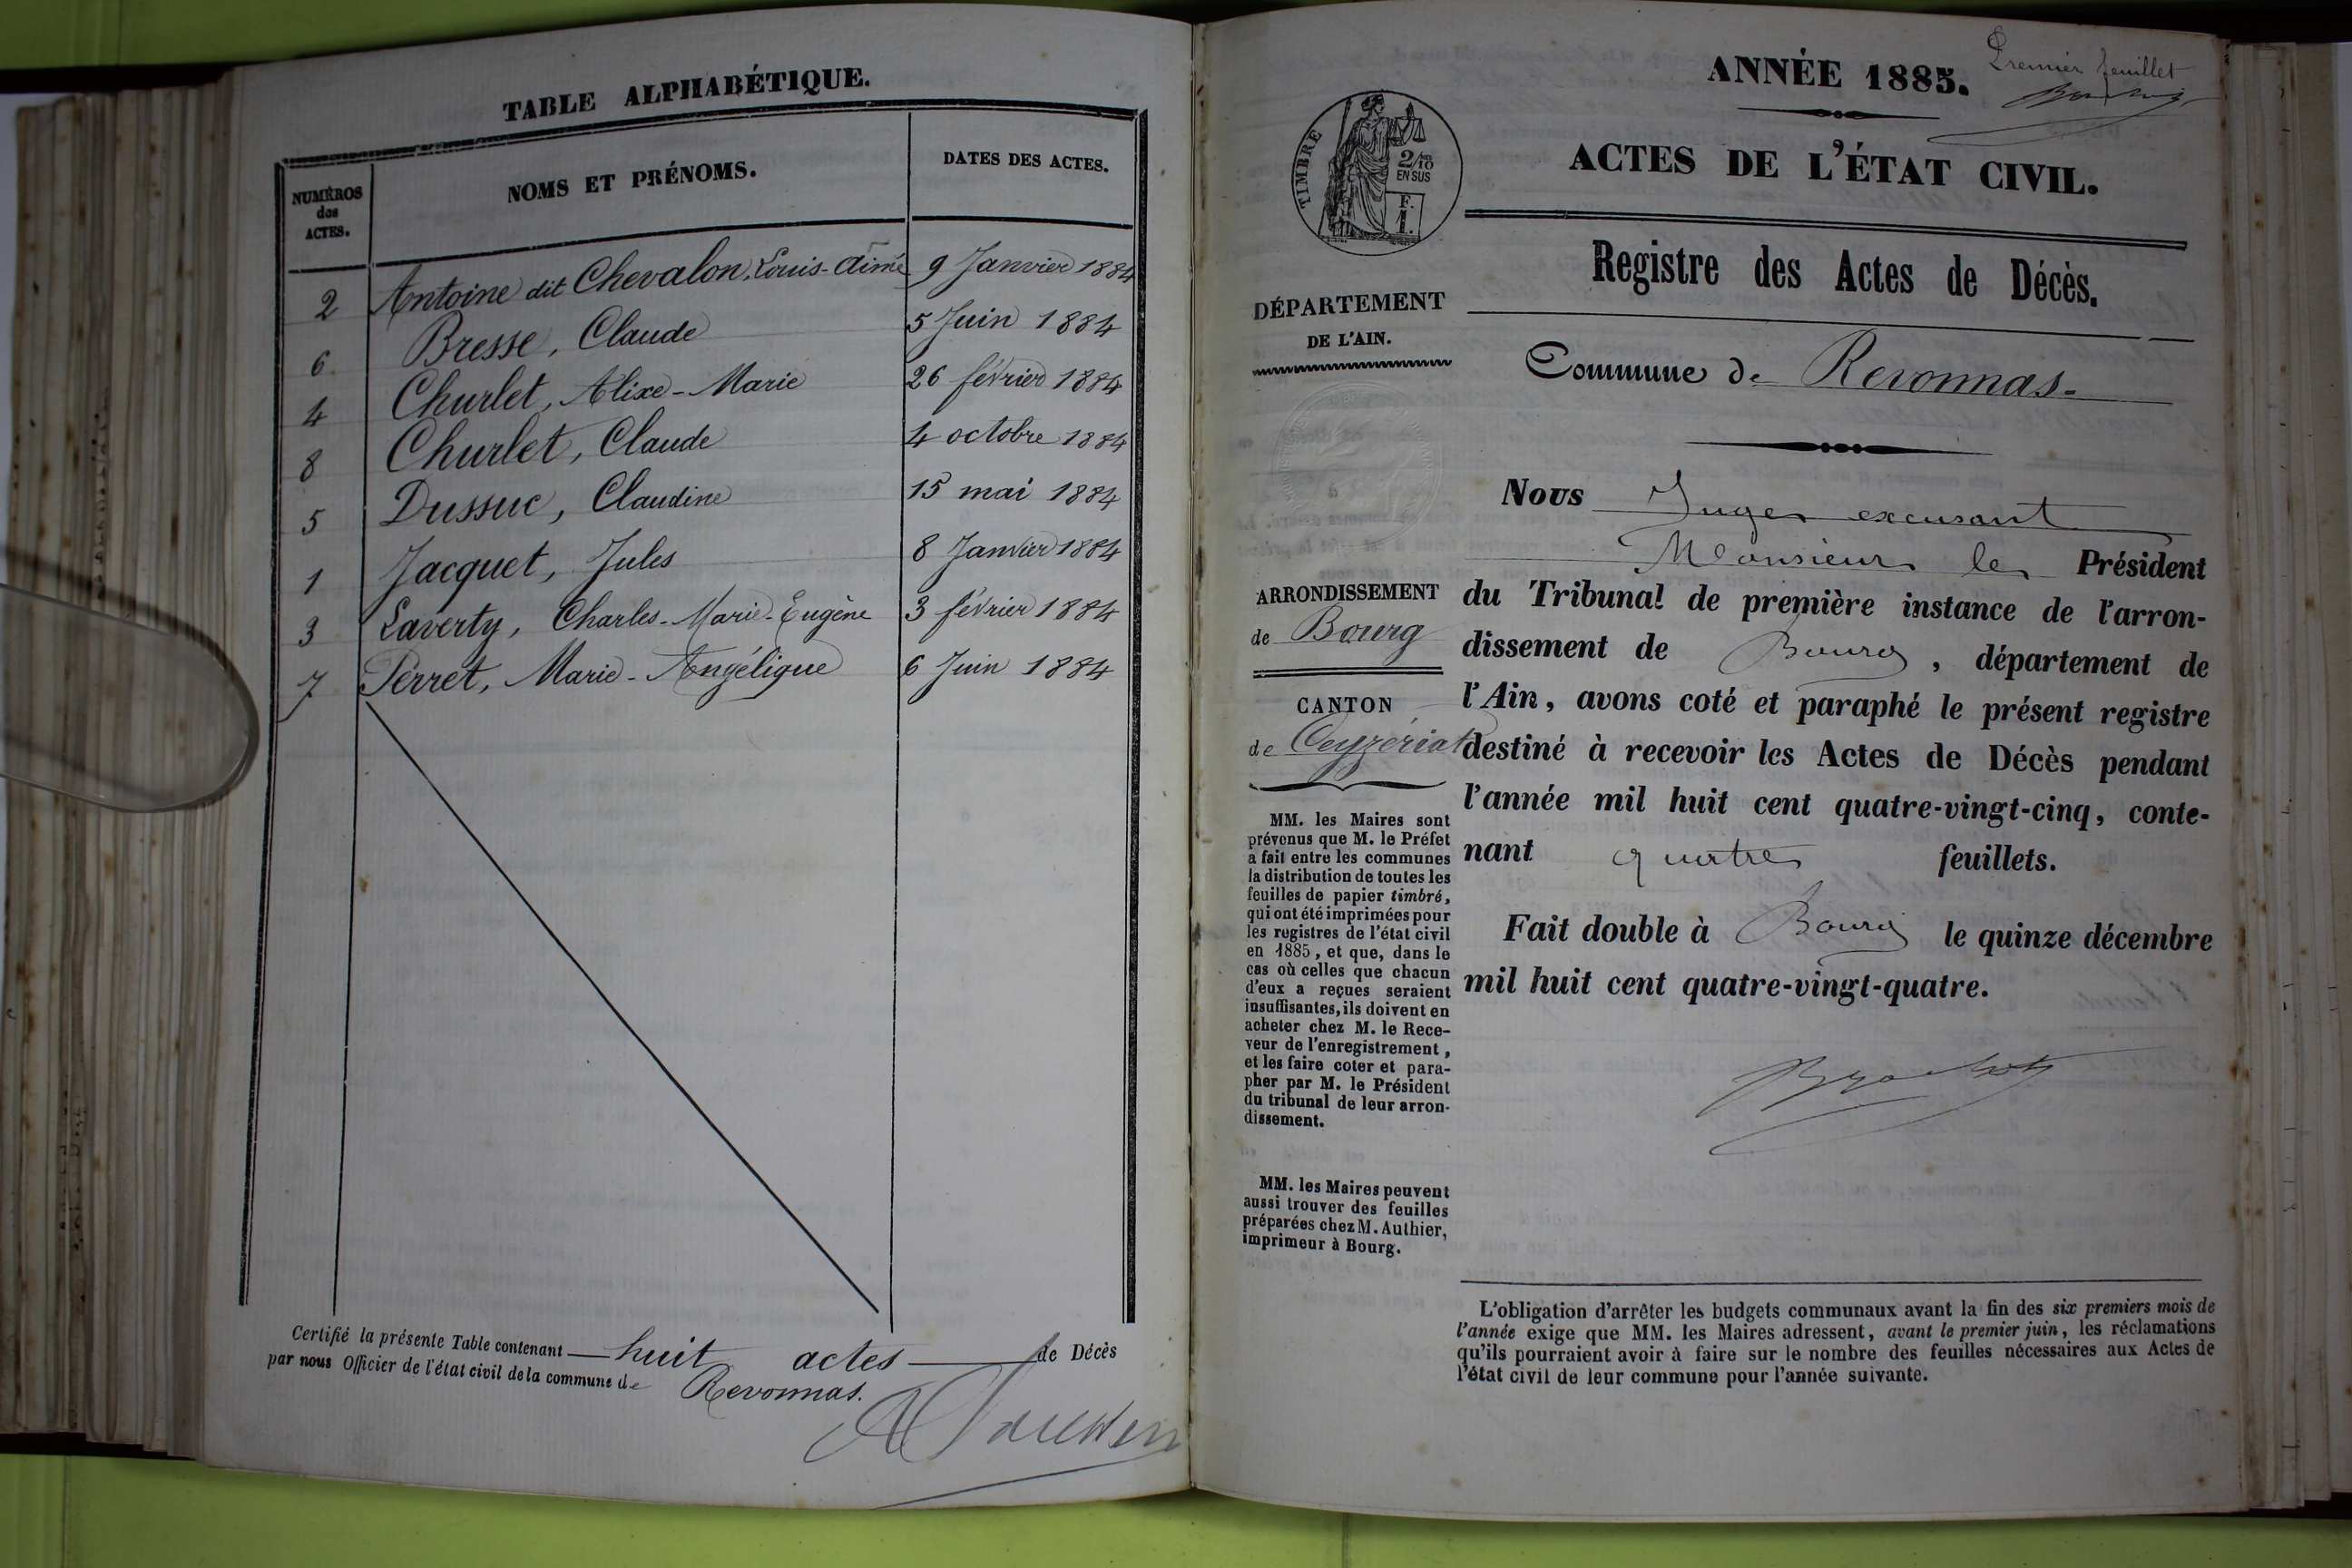 TABLE ALPHABÉTIQUE.
NUMÉROS
des
ACTES.
NOMS ET PRÉNOMS.
DATES DES ACTES.
2 Antoine dit Chevalon, Louis-Aimé 9 Janvier 1884
6 Bresse, Claude 5 Juin 1884
4 Churlet, Alixe-Marie 26 février 1884
8 Churlet, Claude 4 octobre 1884
5 Dussuc, Claudine 15 mai 1884
1 Jacquet, Jules 8 Janvier 1884
3 Laverty, Charles-Marie-Eugène 3 février 1884
7 Perret, Marie-Angélique 6 Juin 1884
Certifié la présente Table contenant huit actes de Décès
par nous Officier de l'état civil de la commune de Revonnas.
Premier feuillet
ANNÉE 1885.
TIMBRE
2/10
EN SUS
F.
1.
ACTES DE L'ÉTAT CIVIL.
Registre des Actes de Décès.
DÉPARTEMENT
DE L'AIN.
Commune de Revonnas.
ARRONDISSEMENT
de Bourg
CANTON
de Ceyzériat
MM. les Maires sont
prévenus que M. le Préfet
a fait entre les communes
la distribution de toutes les
feuilles de papier timbré,
qui ont été imprimées pour
les registres de l'état civil
en 1885, et que, dans le
cas où celles que chacun
d'eux a reçues seraient
insuffisantes, ils doivent en
acheter chez M. le Rece-
veur de l'enregistrement,
et les faire coter et para-
pher par M. le Président
du tribunal de leur arron-
dissement.
MM. les Maires peuvent
aussi trouver des feuilles
préparées chez M. Authier,
imprimeur à Bourg.
Nous Juge excusant
Monsieur le Président
du Tribunal de première instance de l'arron-
dissement de Bourg, département de
l'Ain, avons coté et paraphé le présent registre
destiné à recevoir les Actes de Décès pendant
l'année mil huit cent quatre-vingt-cinq, conte-
nant quatre feuillets.
Fait double à Bourg le quinze décembre
mil huit cent quatre-vingt-quatre.
L'obligation d'arrêter les budgets communaux avant la fin des six premiers mois de
l'année exige que MM. les Maires adressent, avant le premier juin, les réclamations
qu'ils pourraient avoir à faire sur le nombre des feuilles nécessaires aux Actes de
l'état civil de leur commune pour l'année suivante.